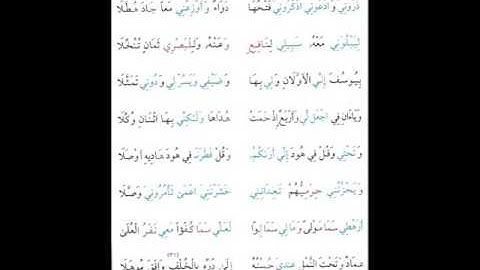 ذَرُونِي وَادْعُونِي اذْكُرُونِي فَتْحُهَا دَوَاءٌ وَأَوْزِعْنِي مَعًا جَادَ هُطَّلَا
لِيَبْلُوَنِي مَعْهُ سَبِيلِي لِنَافِعٍ وَعَنْهُ وَلِلْبَصْرِي ثَمَانٍ تُنُخِّلَا
بِيُوسُفَ إِنِّي الْأَوَّلَانِ وَلِي بِهَا وَضَيْفِي وَيَسِّرْ لِي وَدُونِي تَمَثَّلَا
وَيَاءَانِ فِي اجْعَلْ لِي وَأَرْبَعٌ إِذْ حَمَتْ هُدَاهَا وَلَكِنِّي بِهَا اثْنَانِ وُكِّلَا
وَتَحْتِي وَقُلْ فِي هُودَ إِنِّي أَرَىٰكُمُ وَقُلْ فَطَرَنْ فِي هُودَ هَادِيهِ أَوْصَلَا
وَيَحْزُنُنِي حِرْمِيُّهُمْ تَعِدَانِنِي حَشَرْتَنِي أَعْمَى تَأْمُرُونِي وَصَّلَا
أَرَهْطِي سَمَا مَوْلًى وَمَالِي سَمَا لِوًا لَعَلِّي سَمَا كُفْؤًا مَعِي نَفَرُ الْعُلَا
عِمَادٌ وَتَحْتَ النَّمْلِ عِنْدِي حُسْنُهُ إِلَى دُرِّهِ بِالْخُلْفِ وَافَقَ مُوهَلَا